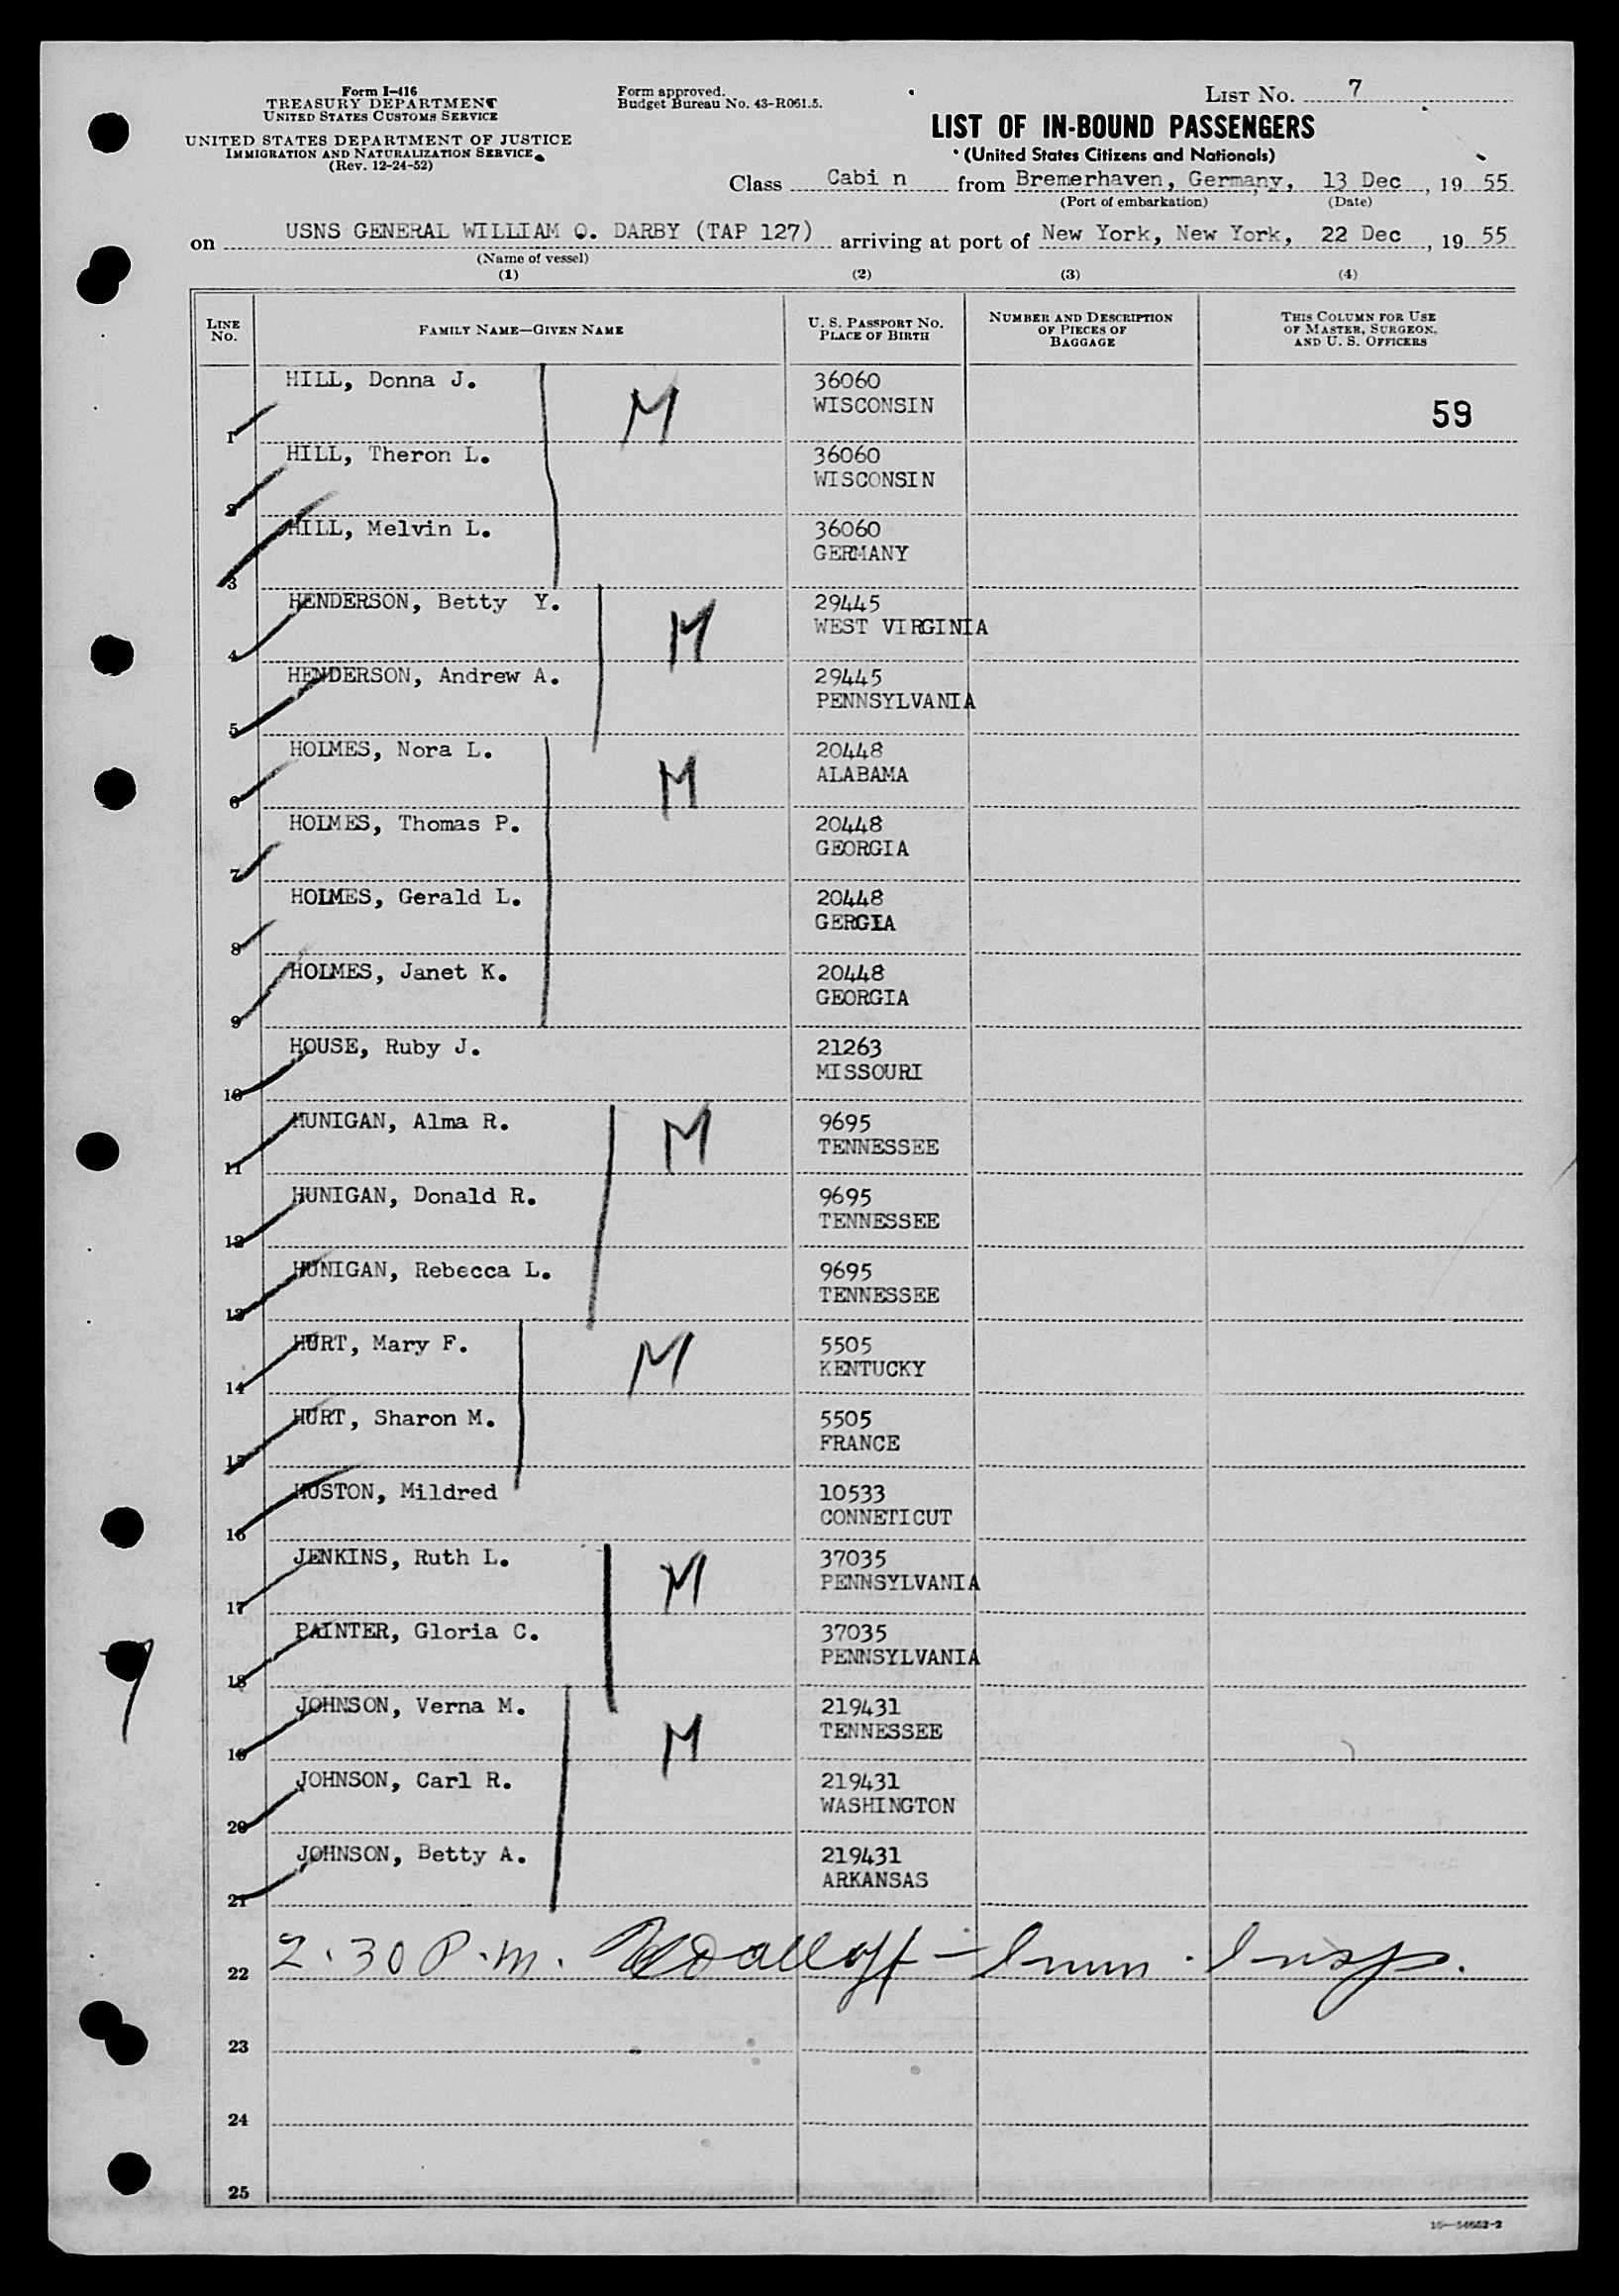 Form I-416
TREASURY DEPARTMENT
UNITED STATES CUSTOMS SERVICE
UNITED STATES DEPARTMENT OF JUSTICE
IMMIGRATION AND NATURALIZATION SERVICE
(Rev. 12-24-52)
Form approved.
Budget Bureau No. 43-R061.5.
LIST NO. 7
LIST OF IN-BOUND PASSENGERS
(United States Citizens and Nationals)
Class Cabi n from Bremerhaven, Germany, 13 Dec, 19 55
(Port of embarkation) (Date)
on USNS GENERAL WILLIAM O. DARBY (TAP 127) arriving at port of New York, New York, 22 Dec, 19 55
(Name of vessel)
(1) (2) (3) (4)
LINE NO. FAMILY NAME—GIVEN NAME U. S. PASSPORT NO. PLACE OF BIRTH NUMBER AND DESCRIPTION OF PIECES OF BAGGAGE THIS COLUMN FOR USE OF MASTER, SURGEON, AND U. S. OFFICERS
1 HILL, Donna J. M 36060
WISCONSIN 59
2 HILL, Theron L. 36060
WISCONSIN
3 HILL, Melvin L. 36060
GERMANY
4 HENDERSON, Betty Y. M 29445
WEST VIRGINIA
5 HENDERSON, Andrew A. 29445
PENNSYLVANIA
6 HOLMES, Nora L. M 20448
ALABAMA
7 HOLMES, Thomas P. 20448
GEORGIA
8 HOLMES, Gerald L. 20448
GERGIA
9 HOLMES, Janet K. 20448
GEORGIA
10 HOUSE, Ruby J. 21263
MISSOURI
11 HUNIGAN, Alma R. M 9695
TENNESSEE
12 HUNIGAN, Donald R. 9695
TENNESSEE
13 HUNIGAN, Rebecca L. 9695
TENNESSEE
14 HURT, Mary F. M 5505
KENTUCKY
15 HURT, Sharon M. 5505
FRANCE
16 HUSTON, Mildred 10533
CONNETICUT
17 JENKINS, Ruth L. M 37035
PENNSYLVANIA
18 PAINTER, Gloria C. 37035
PENNSYLVANIA
19 JOHNSON, Verna M. M 219431
TENNESSEE
20 JOHNSON, Carl R. 219431
WASHINGTON
21 JOHNSON, Betty A. 219431
ARKANSAS
22 2.30 P.m. - Imm. Insp.
23
24
25